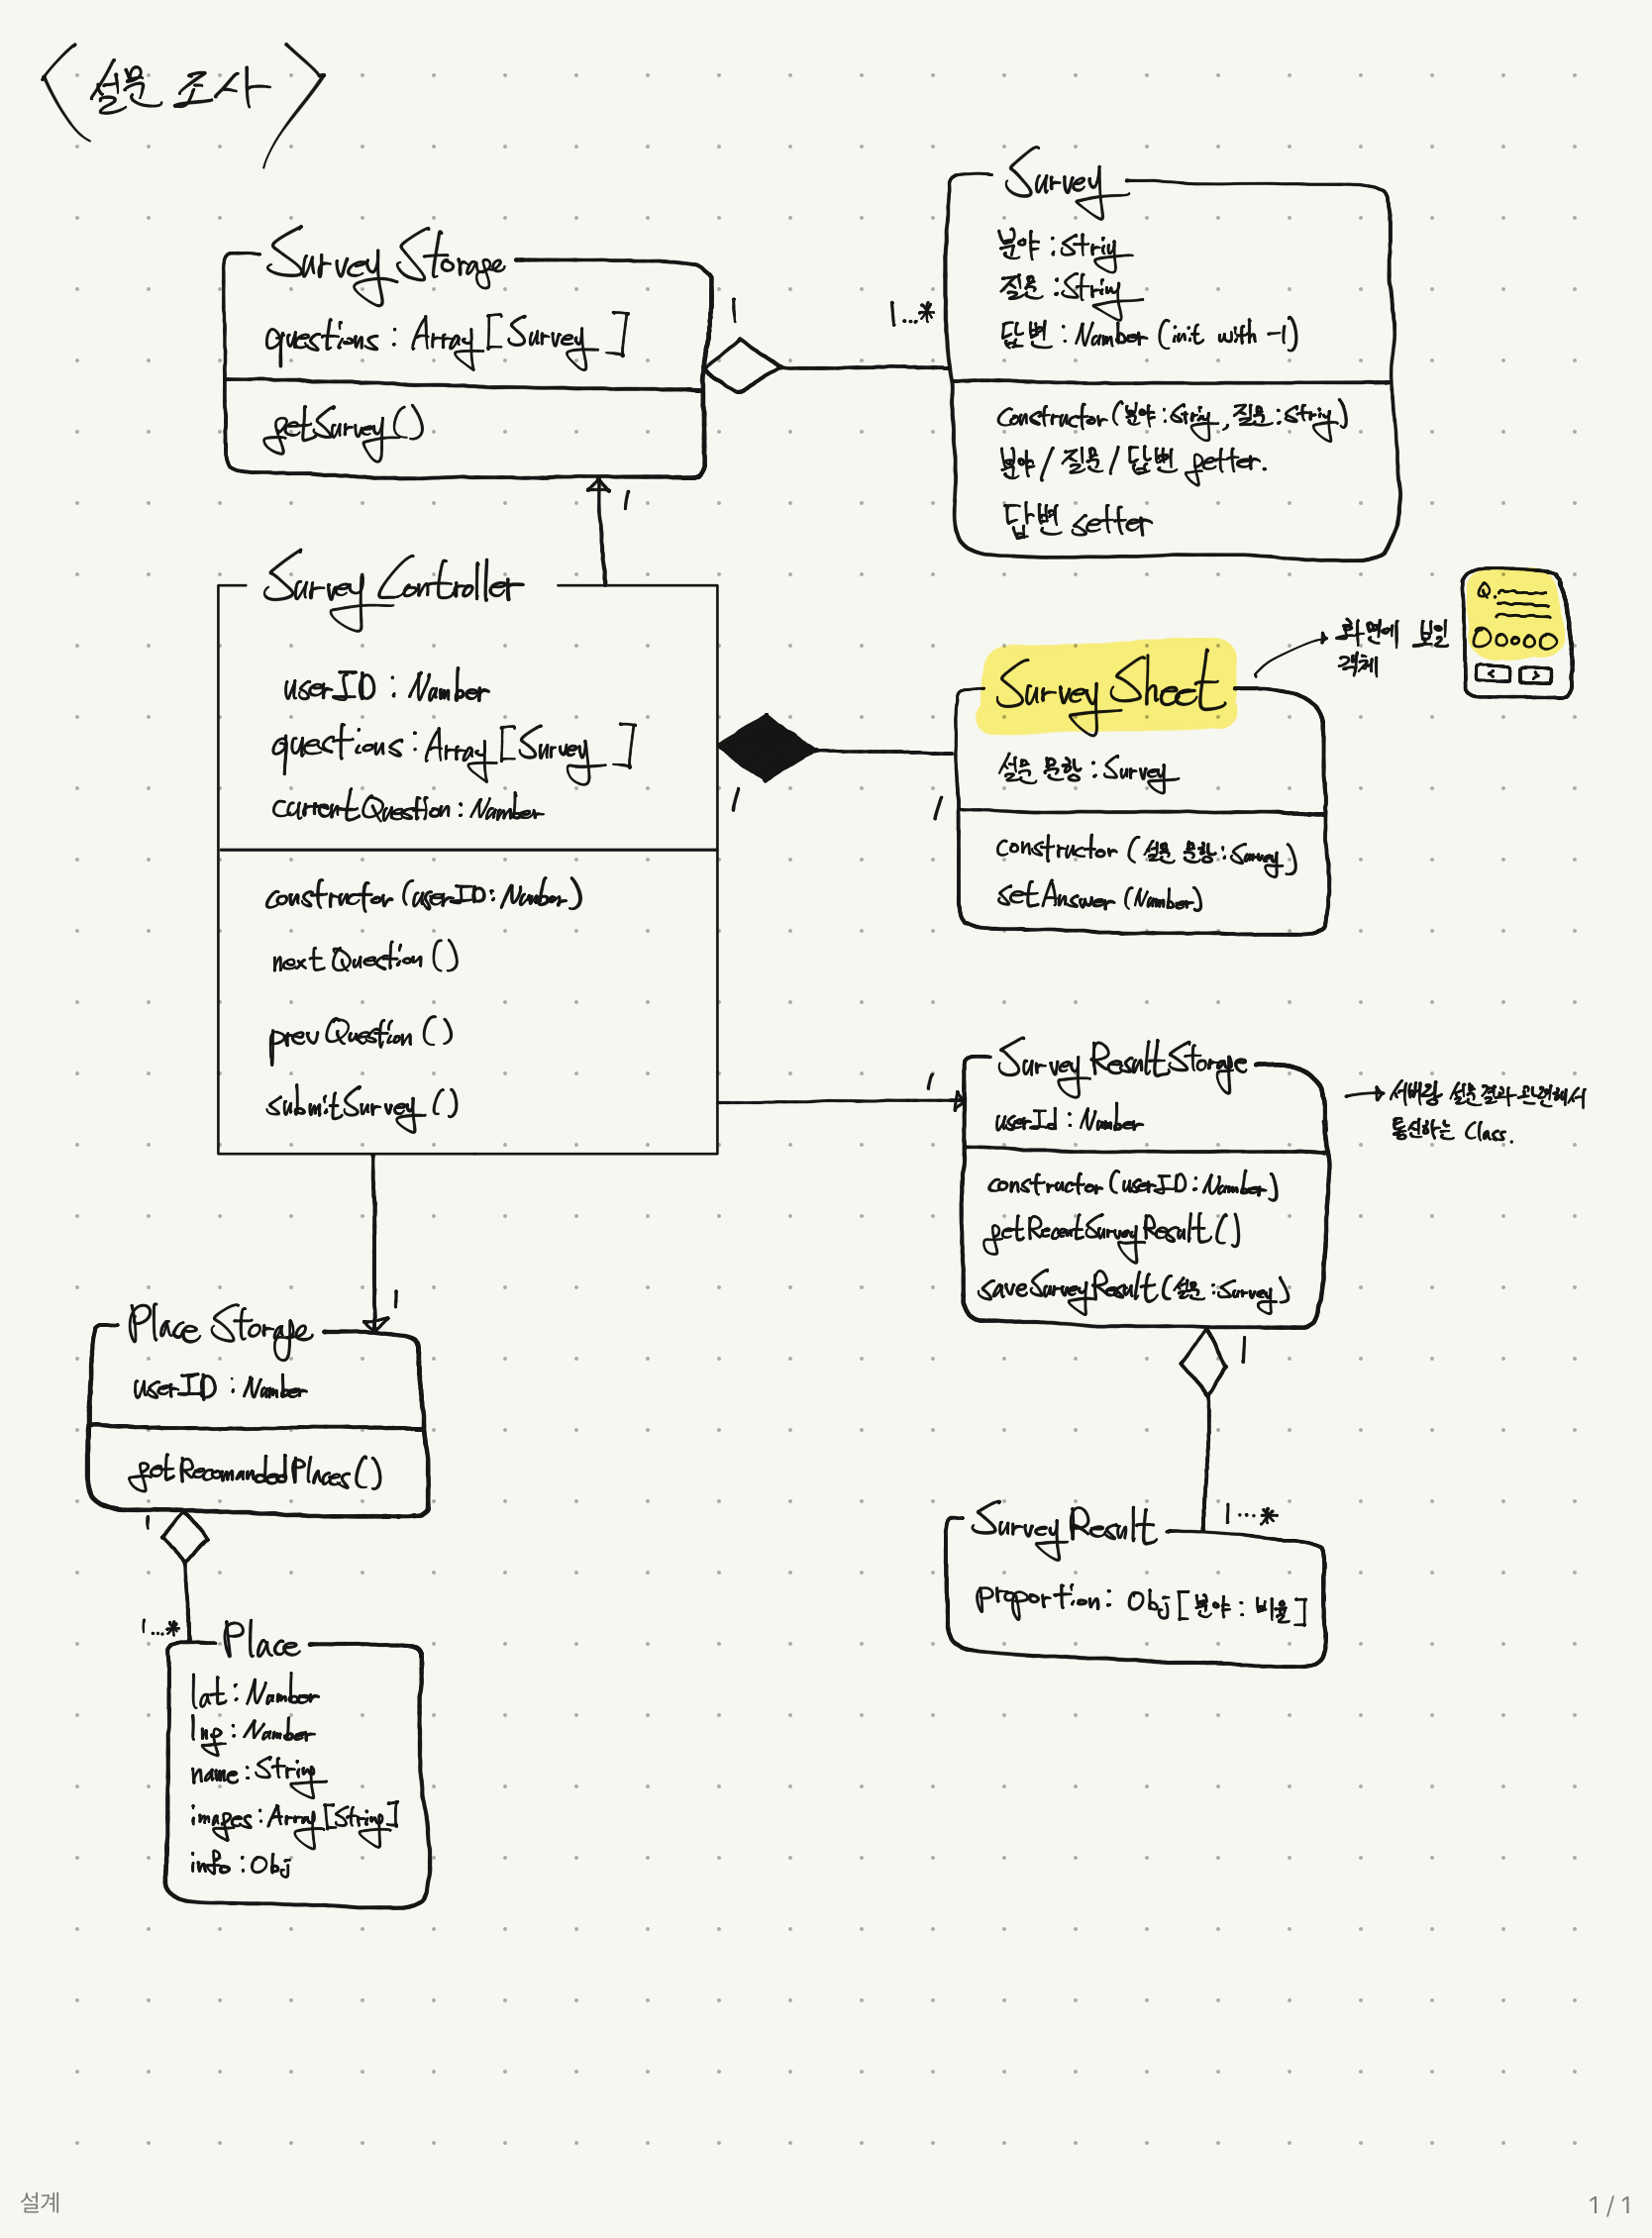 <설문 조사>
Survey Storage
questions : Array[Survey]
getSurvey()
1
1...*
Survey
분야 : String
질문 : String
답변 : Number (init with -1)
constructor(분야 : String, 질문 : String)
분야 / 질문 / 답변 getter.
답변 setter
1
Survey Controller
userID : Number
questions : Array[Survey]
currentQuestion : Number
constructor(userID : Number)
nextQuestion()
prevQuestion()
submitSurvey()
1
1
Survey Sheet
설문 문항 : Survey
constructor(설문 문항 : Survey)
setAnswer(Number)
화면에 보일
객체
Q.
<
>
1
Survey Result Storage
userId : Number
constructor(userID : Number)
getRecentSurveyResult()
saveSurveyResult(설문 : Survey)
서버랑 설문결과 관련해서
통신하는 Class.
1
1...*
Survey Result
proportion : Obj[분야 : 비율]
1
Place Storage
userID : Number
getRecomandedPlaces()
1
1...*
Place
lat : Number
lng : Number
name : String
images : Array[String]
info : Obj
설계
1 / 1